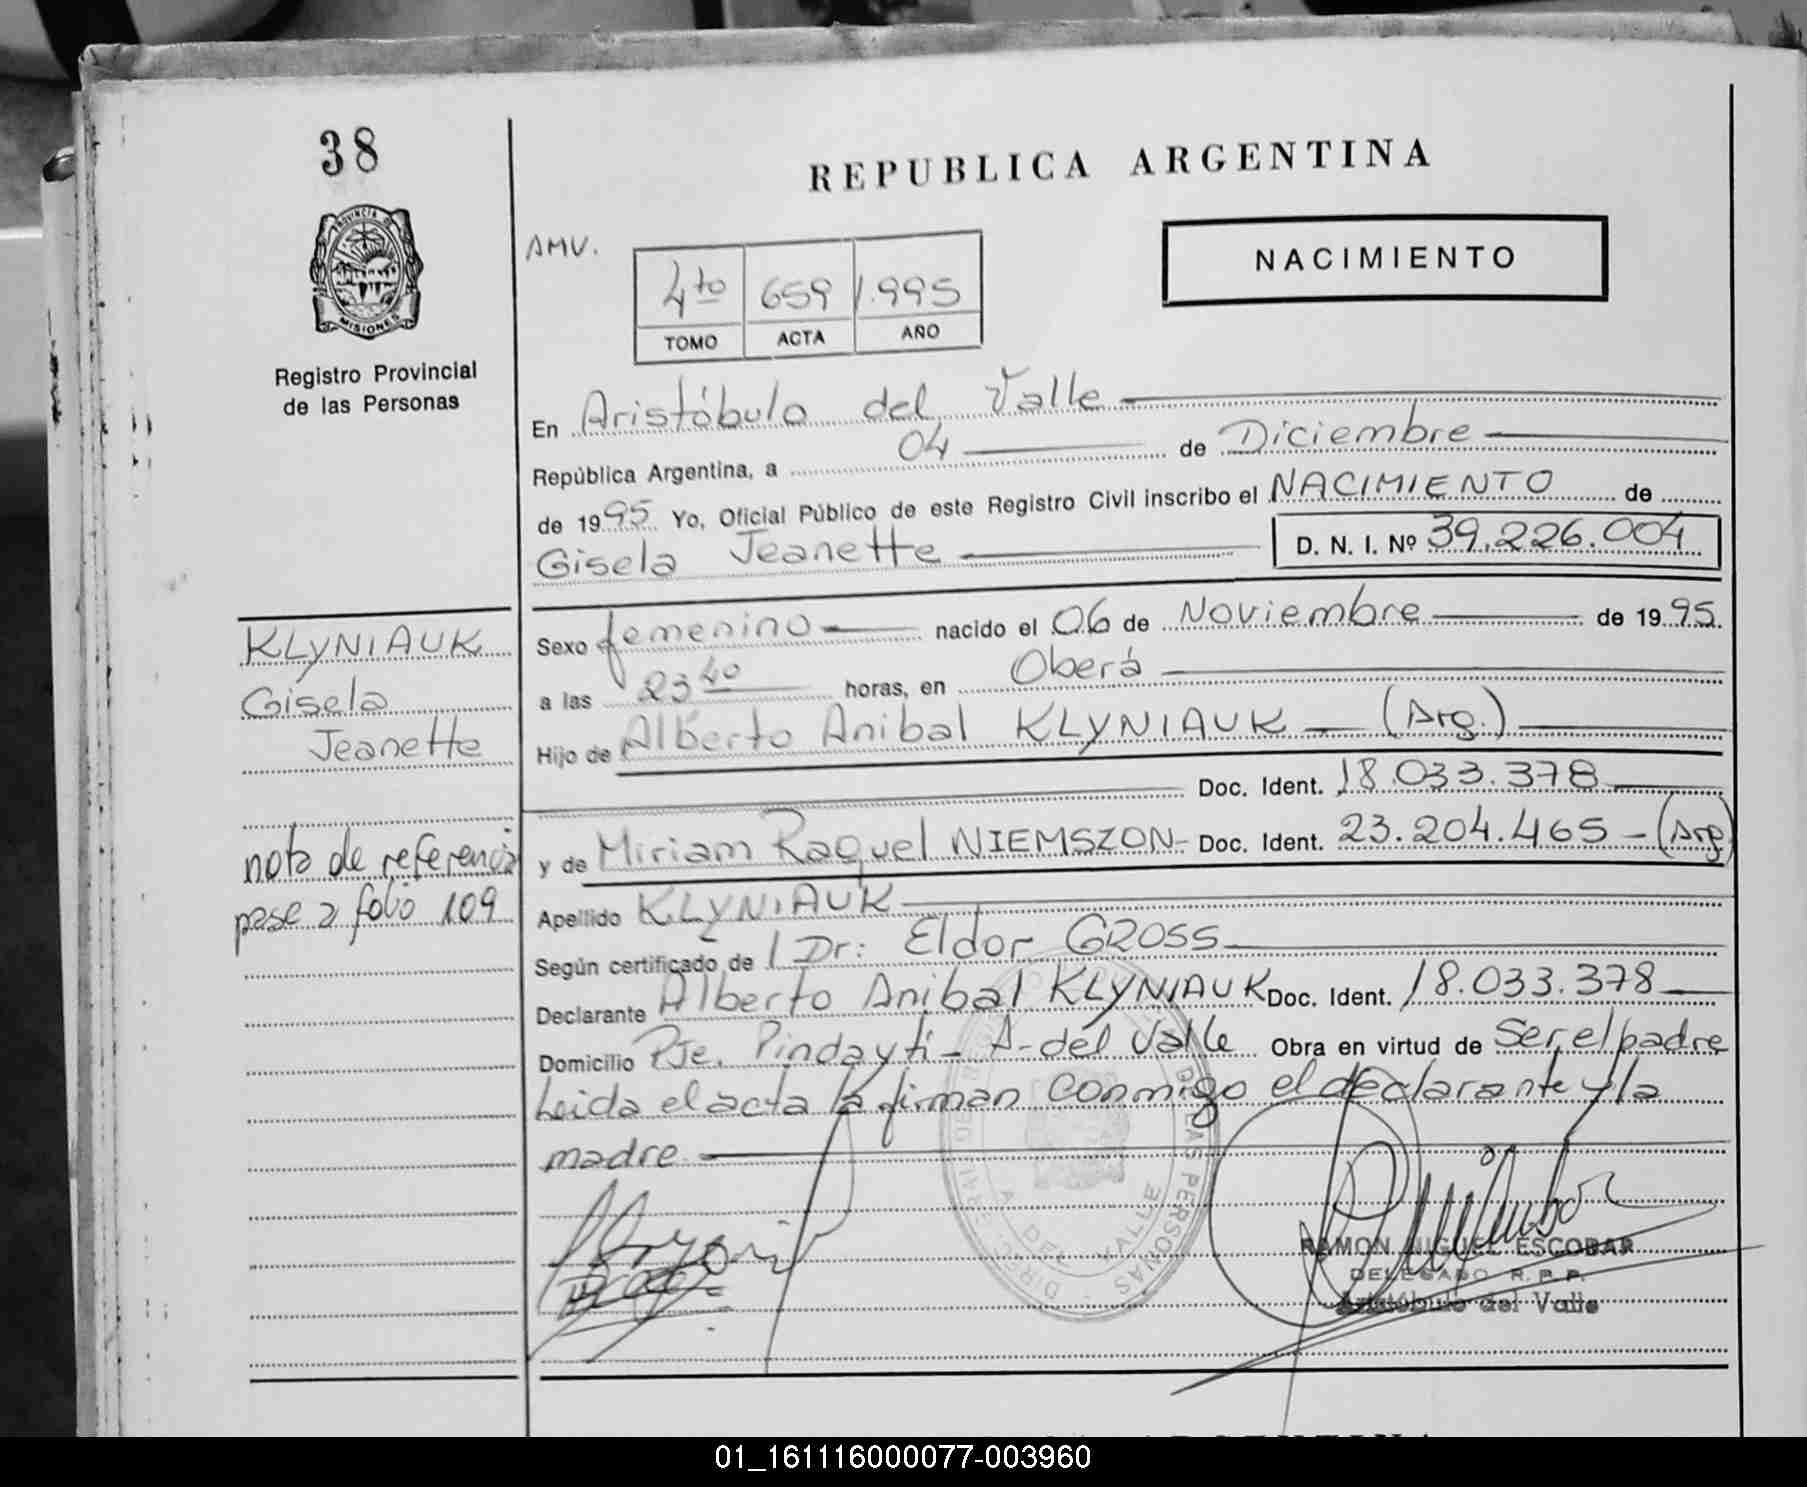 38
REPUBLICA ARGENTINA
PROVINCIA DE
MISIONES
Registro Provincial
de las Personas
AMV.
NACIMIENTO
4to 659 1.995
TOMO ACTA AÑO
En Aristóbulo del Valle
República Argentina, a 04 de Diciembre
de 1995 Yo, Oficial Público de este Registro Civil inscribo el NACIMIENTO de
Gisela Jeanette D. N. I. Nº 39.226.004
KLYNIAUK
Gisela
Jeanette
nota de referencia
pase a folio 109
Sexo femenino nacido el 06 de Noviembre de 1995.
a las 23 40 horas, en Oberá
Hijo de Alberto Anibal KLYNIAUK — (Arg.)
Doc. Ident. 18.033.378
y de Miriam Raquel NIEMSZON- Doc. Ident. 23.204.465 - (Arg)
Apellido KLYNIAUK
Según certificado de l Dr: Eldor GROSS
Declarante Alberto Anibal KLYNIAUK Doc. Ident. 18.033.378
Domicilio Pje. Pindaytí - A-del Valle Obra en virtud de Ser el padre
Leida el acta la firman conmigo el declarante y la
madre
RAMON MIGUEL ESCOBAR
DELEGADO R. P. P.
Aristóbulo del Valle
01_161116000077-003960